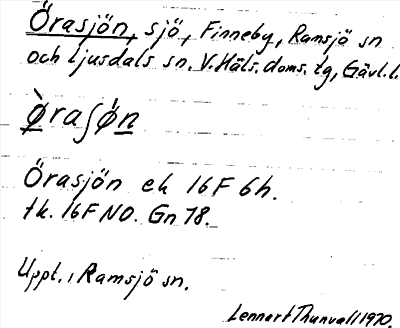 Örasjön, sjö, Finneby, Ramsjö sn
och Ljusdals sn. V. Häls. doms. tg, Gävl. l.
ø̀raʃø̀n
Örasjön ek 16F 6h.
tk. 16F NO. Gn 78.
Uppt. i Ramsjö sn.
Lennart Thunvall 1970.